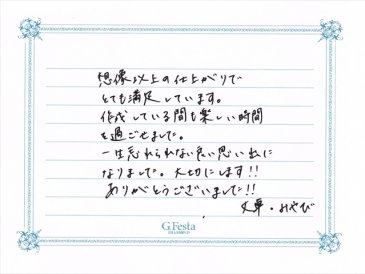 想像以上の仕上がりで
とても満足しています。
作成している間も楽しい時間
を過ごせました。
一生忘れられない良い思い出に
なりました。大切にします!!
ありがとうございました!!
・みやび
G.Festa